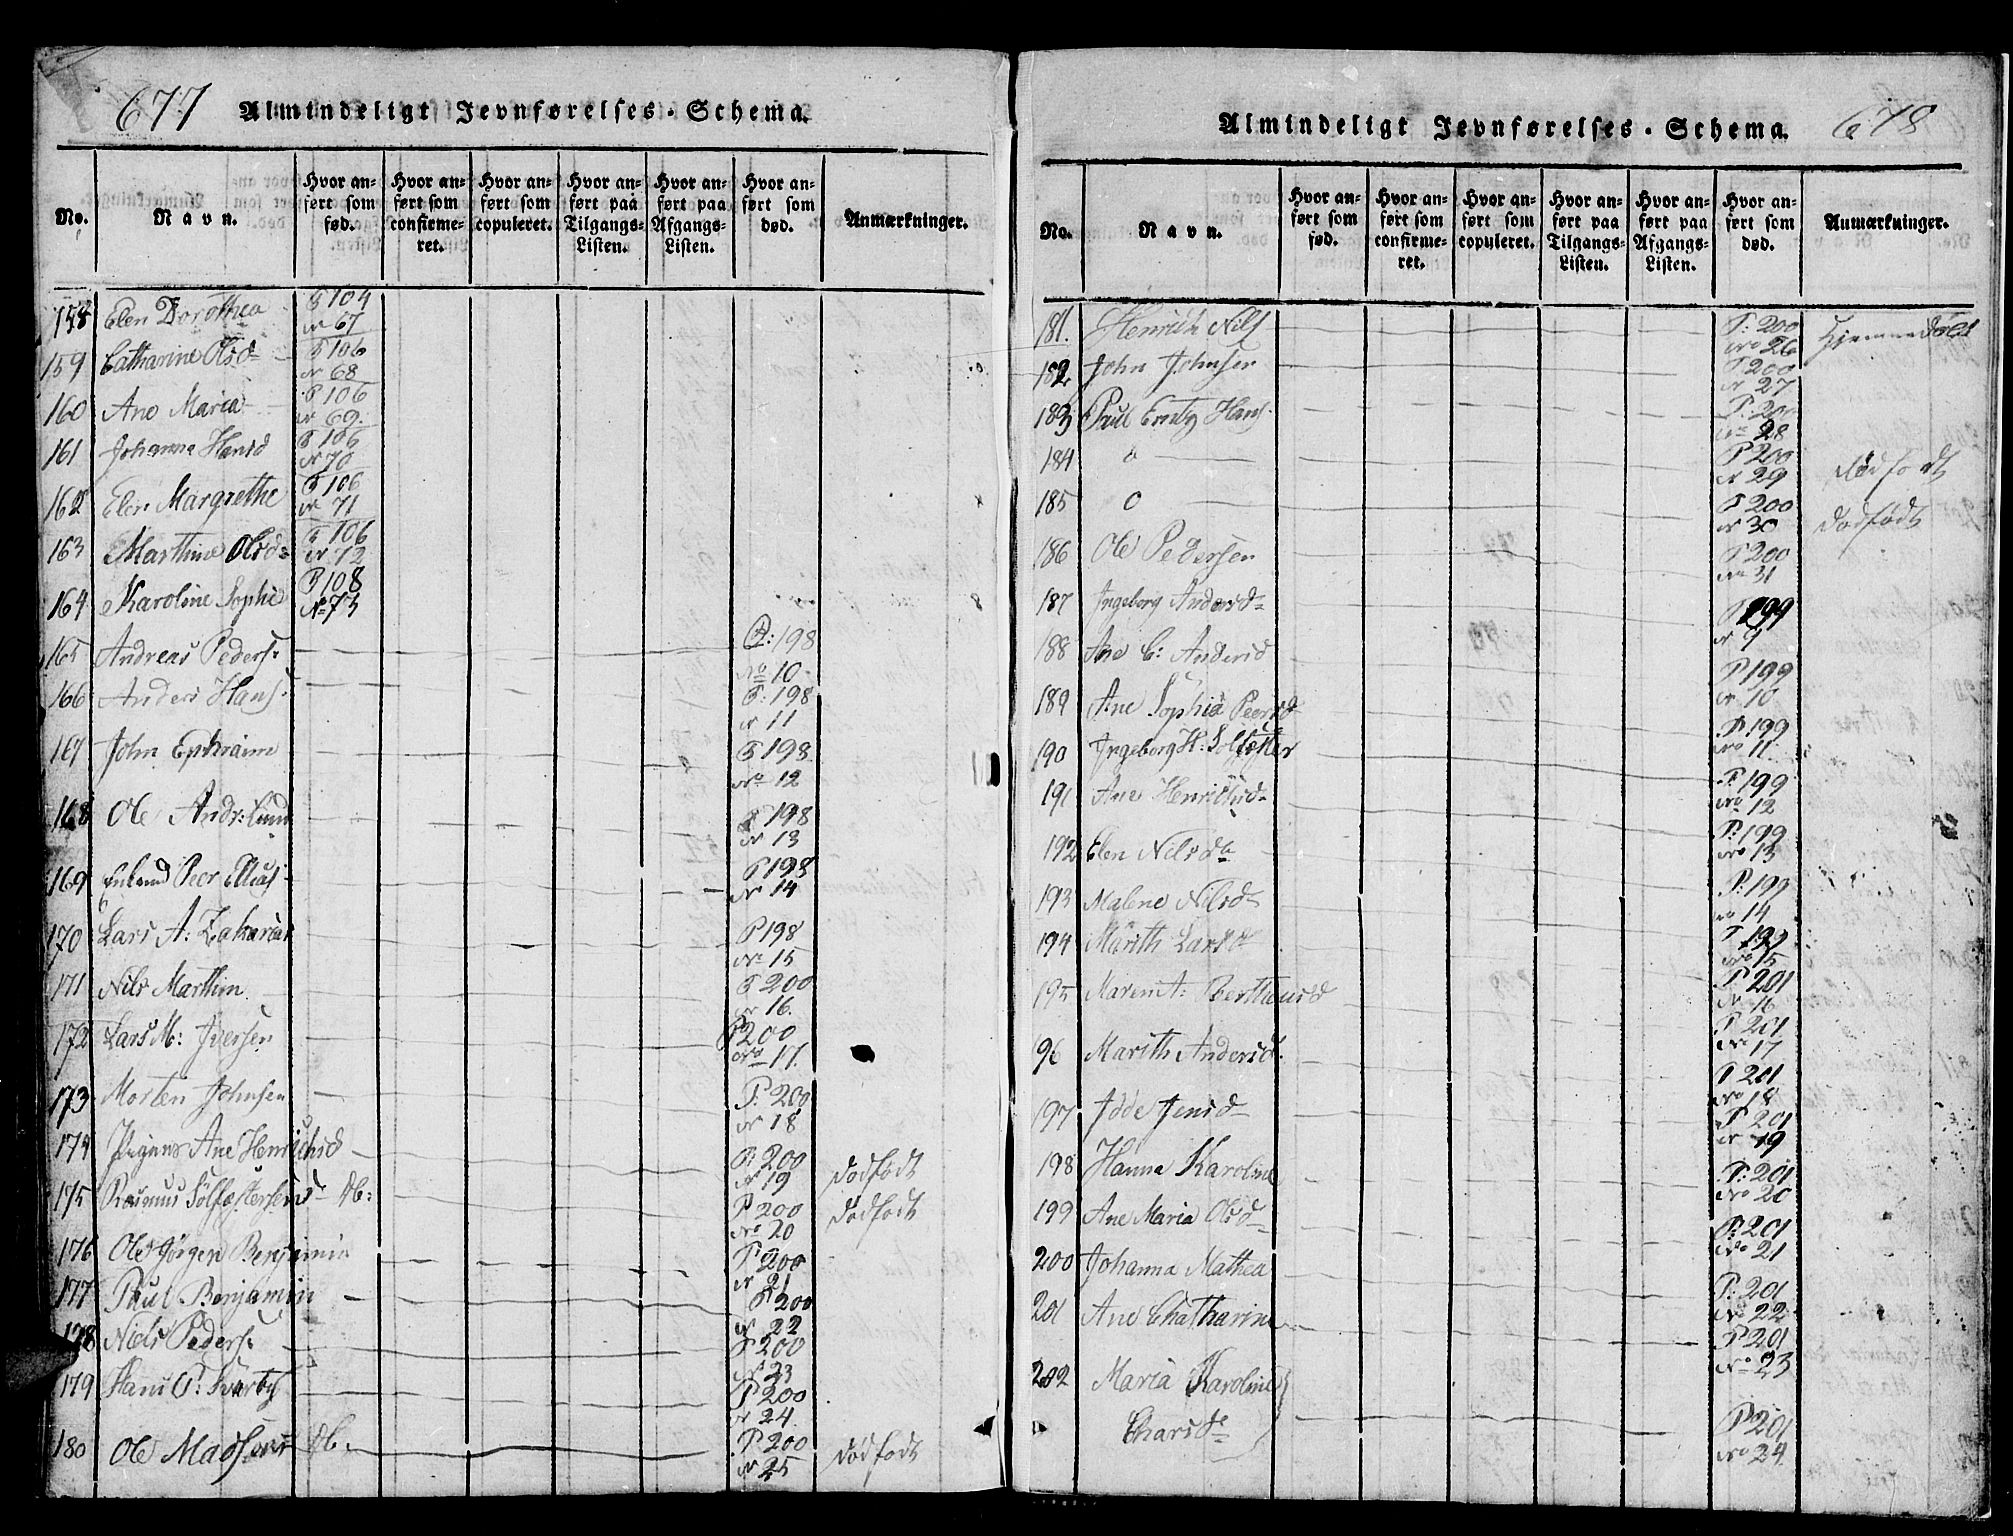 677 Almindeligt Jevnførelses-Schema.
No. Navn. Hvor anført som fød. Hvor anført som confirmeret. Hvor anført som copuleret. Hvor anført paa Tilgangs-Listen. Hvor anført paa Afgangs-Listen. Hvor anført som død. Anmærkninger.
158 Elen Dorothea P 104 No 67
159 Catharine Olsd P 106 No 68
160 Ane Maria P 106 No 69.
161 Johanna Hansd P 106 No 70
162 Elen Margrethe P 106 No 71
163 Marthine Olsd P 106 No 72
164 Karoline Sophie P 108 No 73
165 Andreas Peders. P: 198 No 10
166 Anders Hans. P: 198 No 11
167 John Ephraim P 198 No 12
168 Ole Andr: Lund P 198 No 13
169 Peer Elias P 198 No 14
170 Lars A: Zakarias P 198 No 15
171 Nils Marthin P 200 No 16.
172 Lars M: Iversen P 200 No 17.
173 Morten Johnsen P. 200 No 18
174 Pigens Ane Henrichsd P: 200 No 19 dødfødt
175 Rasmus Sølfestersens Db: P 200 No 20 dødfødt
176 Ole Jørgen Benjamin P 200 No 21
177 Paul Benjamin P 200 No 22
178 Niels Peders. P 200 No 23
179 Hans P: Kvarby P 200 No 24
180 Ole Madsens Db. P 200 No 25 dødfødt
Almindeligt Jevnførelses-Schema. 678
No. Navn. Hvor anført som fød. Hvor anført som confirmeret. Hvor anført som copuleret. Hvor anført paa Tilgangs-Listen. Hvor anført paa Afgangs-Listen. Hvor anført som død. Anmærkninger.
181. Henrich Nils P: 200 No 26 Hjemmedøbt
182 John Johnsen P 200 No 27
183 Paul Hans. P: 200 No 28
184 o P 200 No 29 dødfødt
185 o P 200 No 30 dødfødt
186 Ole Pedersen P 200 No 31
187 Ingeborg Andersd P 199 No 9
188 Ane C: Andersd P 199 No 10
189 Ane Sophia Peersd P 199 No 11
190 Ingeborg H: Solfester P. 199 No 12
191 Ane Henrichsd P: 199 No 13
192 Elen Nilsd P: 199 No 14
193 Malene Nilsd P 199 No 15
194 Marith Larsd P 201 No 16
195 Maren A: Bertheusd P 201 No 17
96 Marith Andersd. P 201 No 18
197 Idde Jensd P 201 No 19
198 Hanna Karoline P: 201 No 20
199 Ane Maria Olsd P: 201 No 21
200 Johanna Mathea P: 201 No 22
201 Ane Chatharine P 201 No 23
202 Maria Karoline
Charsd P 201 No 24